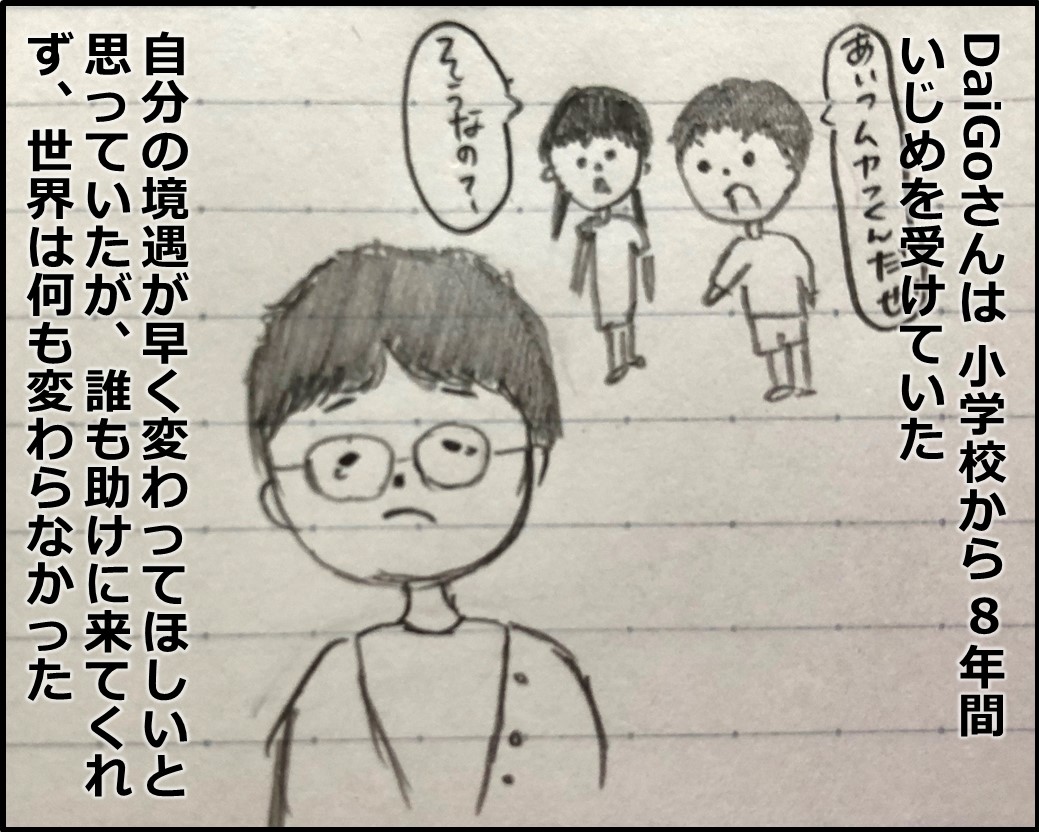 DaiGoさんは 小学校から 8年間
いじめを受けていた
あいつムカつくんだぜ
そうなの?
自分の境遇が早く変わってほしいと
思っていたが、誰も助けに来てくれ
ず、世界は何も変わらなかった